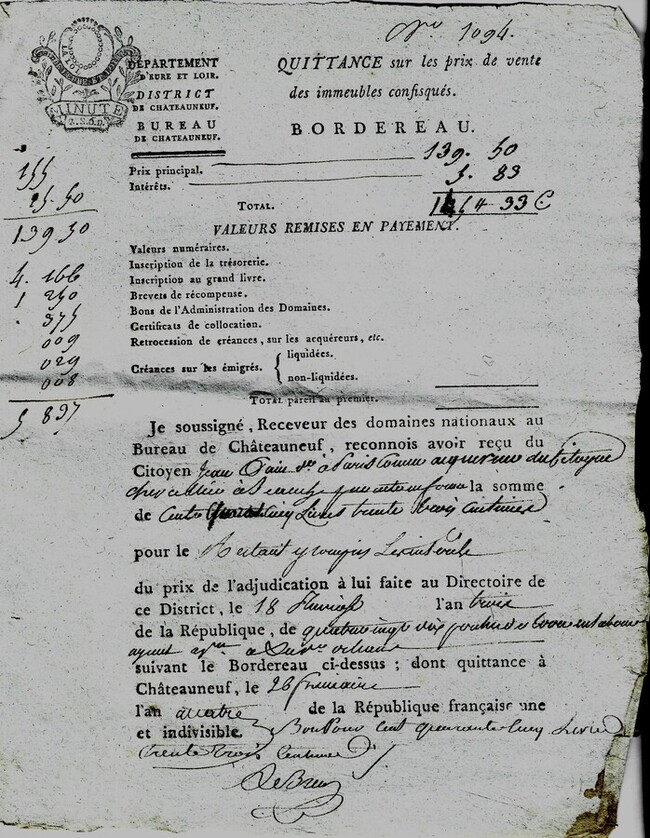 Nro 1094.
MINUTE
DÉPARTEMENT
D'EURE ET LOIR.
DISTRICT
DE CHATEAUNEUF.
BUREAU
DE CHATEAUNEUF.
QUITTANCE sur les prix de vente
des immeubles confisqués.
BORDEREAU.
Prix principal. 139. 50
Intérêts. 5. 83
TOTAL. 33 C
VALEURS REMISES EN PAYEMENT.
Valeurs numéraires.
Inscription de la trésorerie.
Inscription au grand livre.
Brevets de récompense.
Bons de l'Administration des Domaines.
Certificats de collocation.
Retrocession de créances, sur les acquéreurs, etc.
Créances sur les émigrés. { liquidées.
non-liquidées.
TOTAL pareil au premier.
155
15. 50
139 50
4. 166
1 250
. 375
009
029
008
5 837
Je soussigné, Receveur des domaines nationaux au
Bureau de Châteauneuf, reconnois avoir reçu du
Citoyen Jean
la somme
de Cent Livres trente trois centimes
pour le Restant y compris
du prix de l'adjudication à lui faite au Directoire de
ce District, le 18 l'an trois
de la République, de quatre vingt dix
suivant le Bordereau ci-dessus ; dont quittance à
Châteauneuf, le 26 frimaire
l'an quatre de la République française une
et indivisible. Bon Pour cent quarante cinq Livres
trente trois Centimes